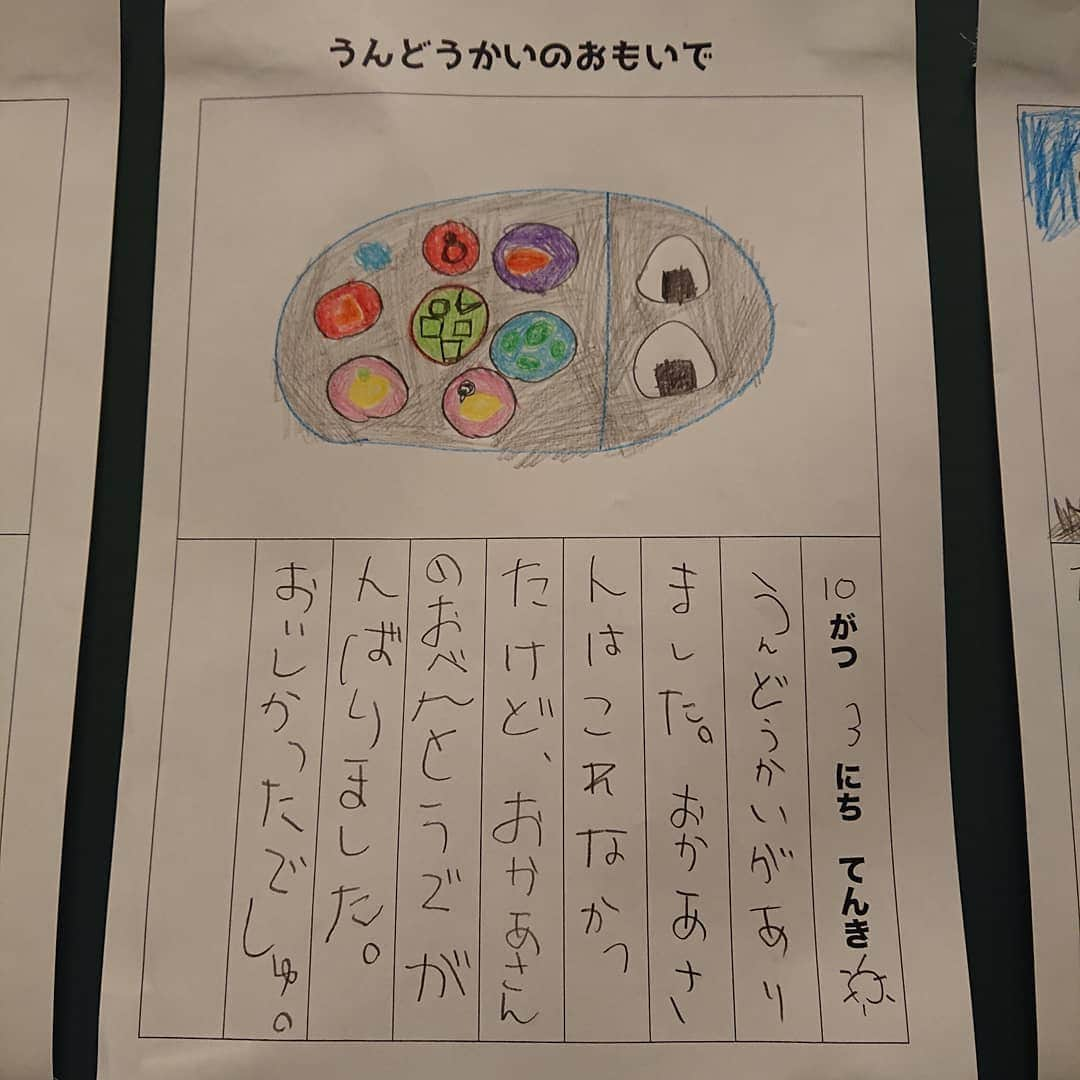 うんどうかいのおもいで
10がつ 3にち てんき
うんどうかいがあり
ました。おかあさ
んはこれなかっ
たけど、おかあさん
のおべんとうでが
んばりました。
おいしかったでしゅ。